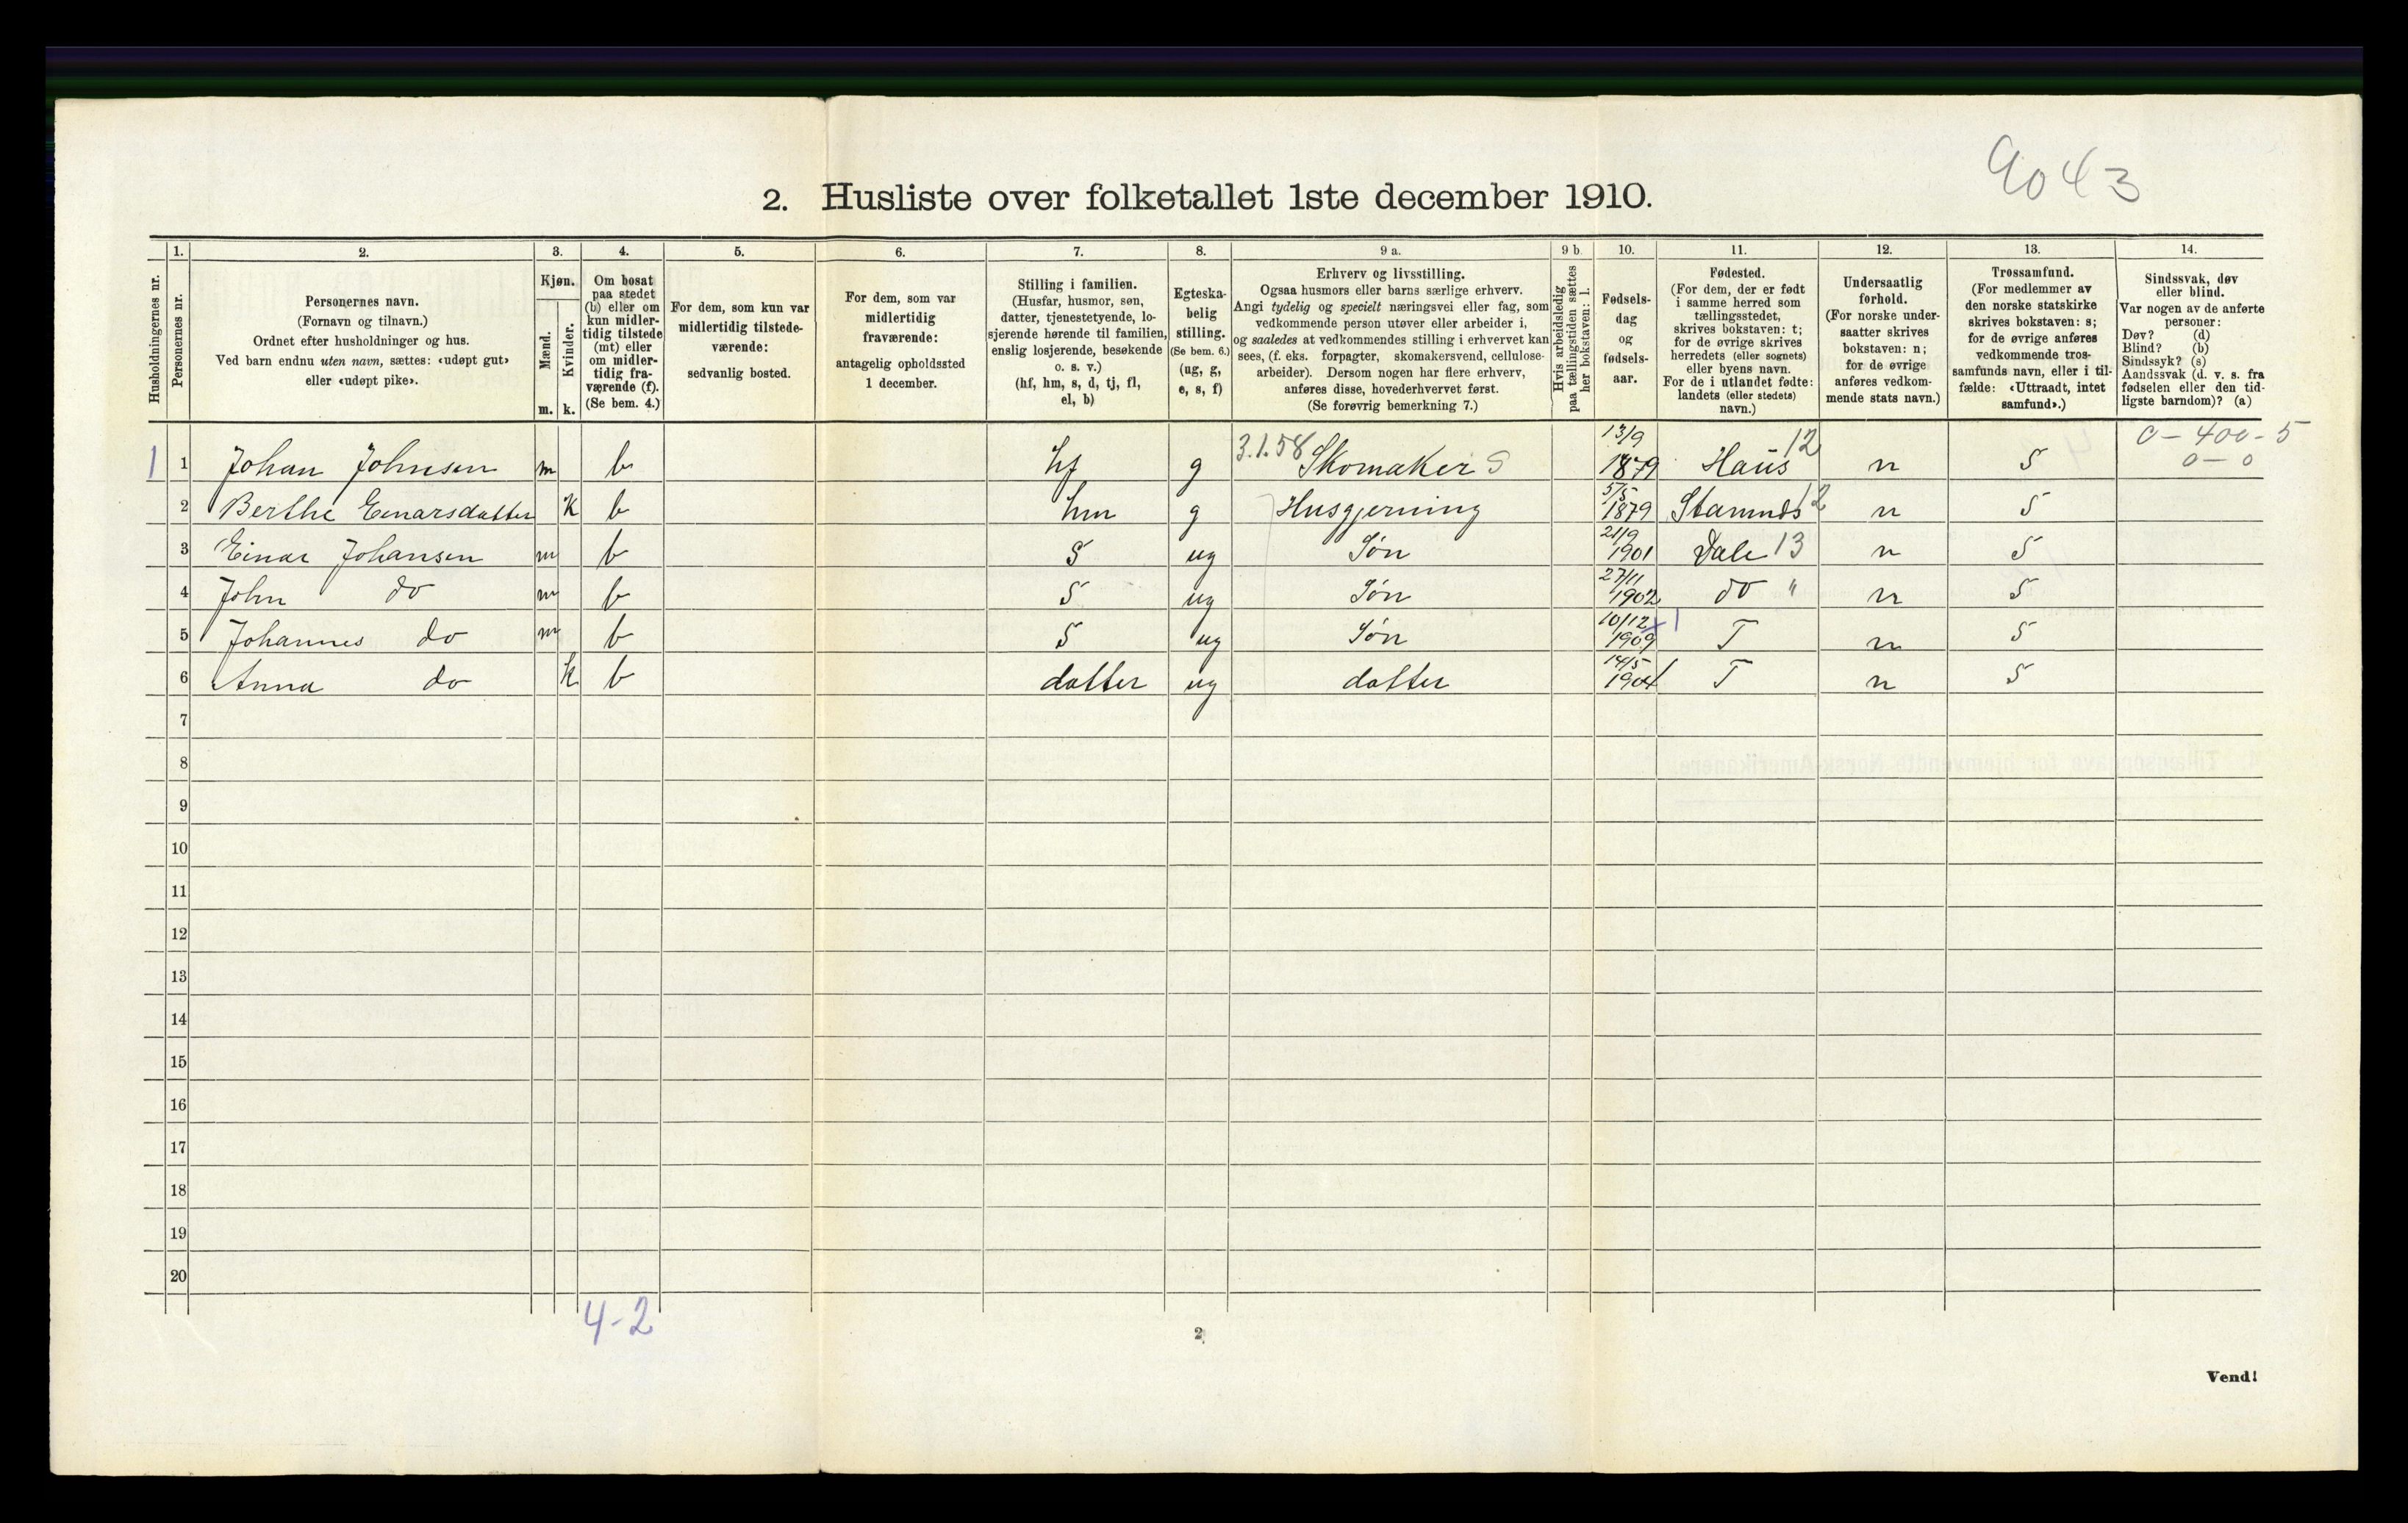 9043
2. Husliste over folketallet 1ste december 1910.
Husholdningernes nr.
1.
Personernes nr.
2.
Personernes navn.
(Fornavn og tilnavn.)
Ordnet efter husholdninger og hus.
Ved barn endnu uten navn, sættes: «udøpt gut»
eller «udøpt pike».
3.
Kjøn.
Mænd.
m.
Kvinder.
k.
4.
Om bosat
paa stedet
(b) eller om
kun midler-
tidig tilstede
(mt) eller
om midler-
tidig fra-
værende (f).
(Se bem. 4.)
5.
For dem, som kun var
midlertidig tilstede-
værende:
sedvanlig bosted.
6.
For dem, som var
midlertidig
fraværende:
antagelig opholdssted
1 december.
7.
Stilling i familien.
(Husfar, husmor, søn,
datter, tjenestetyende, lo-
sjerende hørende til familien,
enslig losjerende, besøkende
o. s. v.)
(hf, hm, s, d, tj, fl,
el, b)
8.
Egteska-
belig
stilling.
(Se bem. 6.)
(ug, g,
e, s, f)
9 a.
Erhverv og livsstilling.
Ogsaa husmors eller barns særlige erhverv.
Angi tydelig og specielt næringsvei eller fag, som
vedkommende person utøver eller arbeider i,
og saaledes at vedkommendes stilling i erhvervet kan
sees, (f. eks. forpagter, skomakersvend, cellulose-
arbeider). Dersom nogen har flere erhverv,
anføres disse, hovederhvervet først.
(Se forøvrig bemerkning 7.)
9 b.
Hvis arbeidsledig
paa tællingstiden sættes
her bokstaven: l.
10.
Fødsels-
dag
og
fødsels-
aar.
11.
Fødested.
(For dem, der er født
i samme herred som
tællingsstedet,
skrives bokstaven: t;
for de øvrige skrives
herredets (eller sognets)
eller byens navn.
For de i utlandet fødte:
landets (eller stedets)
navn.)
12.
Undersaatlig
forhold.
(For norske under-
saatter skrives
bokstaven: n;
for de øvrige
anføres vedkom-
mende stats navn.)
13.
Trossamfund.
(For medlemmer av
den norske statskirke
skrives bokstaven: s;
for de øvrige anføres
vedkommende tros-
samfunds navn, eller i til-
fælde: «Uttraadt, intet
samfund».)
14.
Sindssvak, døv
eller blind.
Var nogen av de anførte
personer:
Døv? (d)
Blind? (b)
Sindssyk? (s)
Aandssvak (d. v. s. fra
fødselen eller den tid-
ligste barndom)? (a)
1 1 Johan Johnsen m b hf g 3.1.58 Skomaker S 13/9 1879 Haus 12 n S 0-400-5 0-0
2 Berthe Einarsdatter K b hm g Husgjerning 5/5 1879 Stamnds 12 n S
3 Einar Johansen m b S ug Søn 21/9 1901 Dale 13 n S
4 John do m b S ug Søn 27/11 1902 do " n S
5 Johannes do m b S ug Søn 10/12 1909 T n S
6 Anna do K b datter ug datter 14/5 1904 T n S
7
8
9
10
11
12
13
14
15
16
17
18
19
20
4-2
2
Vend!